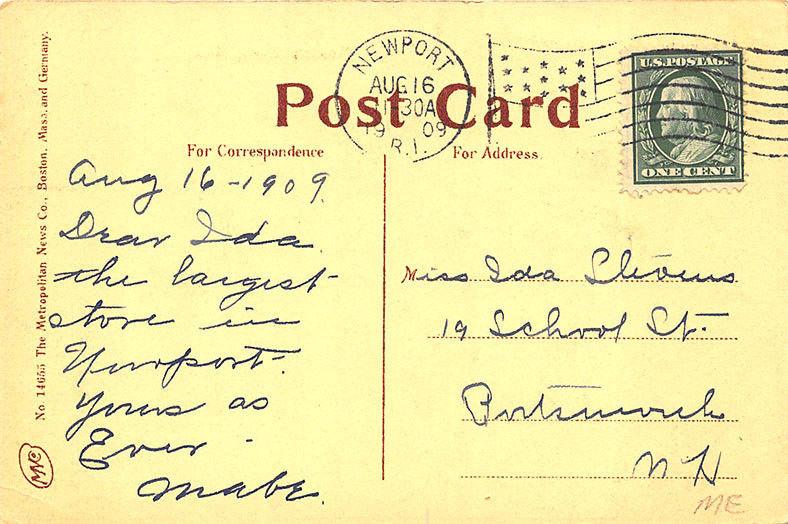 Post Card
NEWPORT
AUG 16
1-30A
19 09
R.I.
U.S. POSTAGE
ONE CENT
For Correspondence
For Address
Aug 16-1909.
Dear Ida
the largest
store in
Newport.
Yours as
Ever -
Mabe.
Miss Ida Stevens
19 School St.
Portsmouth
N H
ME
No. 14655 The Metropolitan News Co., Boston, Mass. and Germany.
MNC